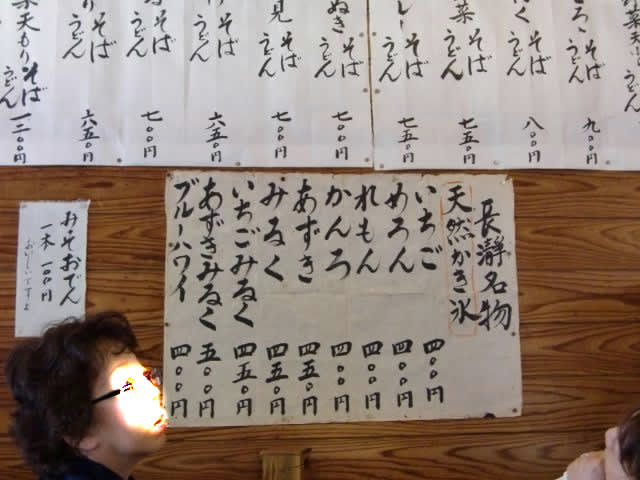 うどん
ろ そば うどん 九〇〇円
く そば うどん 八〇〇円
菜 そば うどん 七五〇円
レー そば うどん 七五〇円
ぬき そば うどん 七〇〇円
見 そば うどん 七〇〇円
そば うどん 六五〇円
そば うどん 七〇〇円
り そば うどん 六五〇円
菜天もりそば うどん 一二〇〇円
長瀞名物
天然かき氷
いちご 四〇〇円
めろん 四〇〇円
れもん 四〇〇円
かんろ 四〇〇円
あずき 四五〇円
みるく 四五〇円
いちごみるく 四五〇円
あずきみるく 五〇〇円
ブルーハワイ 四〇〇円
みそおでん
一本 一〇〇円
おいしいですよ